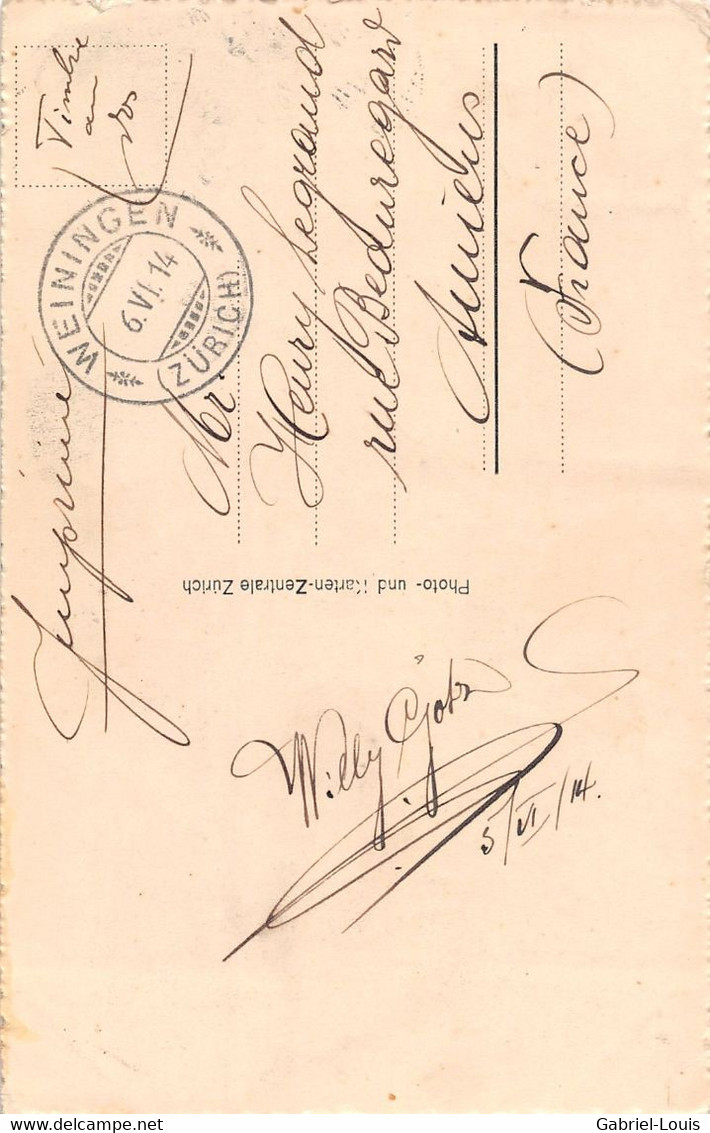 Timbre
au
dos
WEININGEN
6.VI.14
(ZÜRICH)
Imprimé
Mr.
Henry Legrand
rue Beauregard
Amiens
(France)
Photo- und Karten-Zentrale Zürich
Willy
5/VI/14.
delcampe.net
Gabriel-Louis